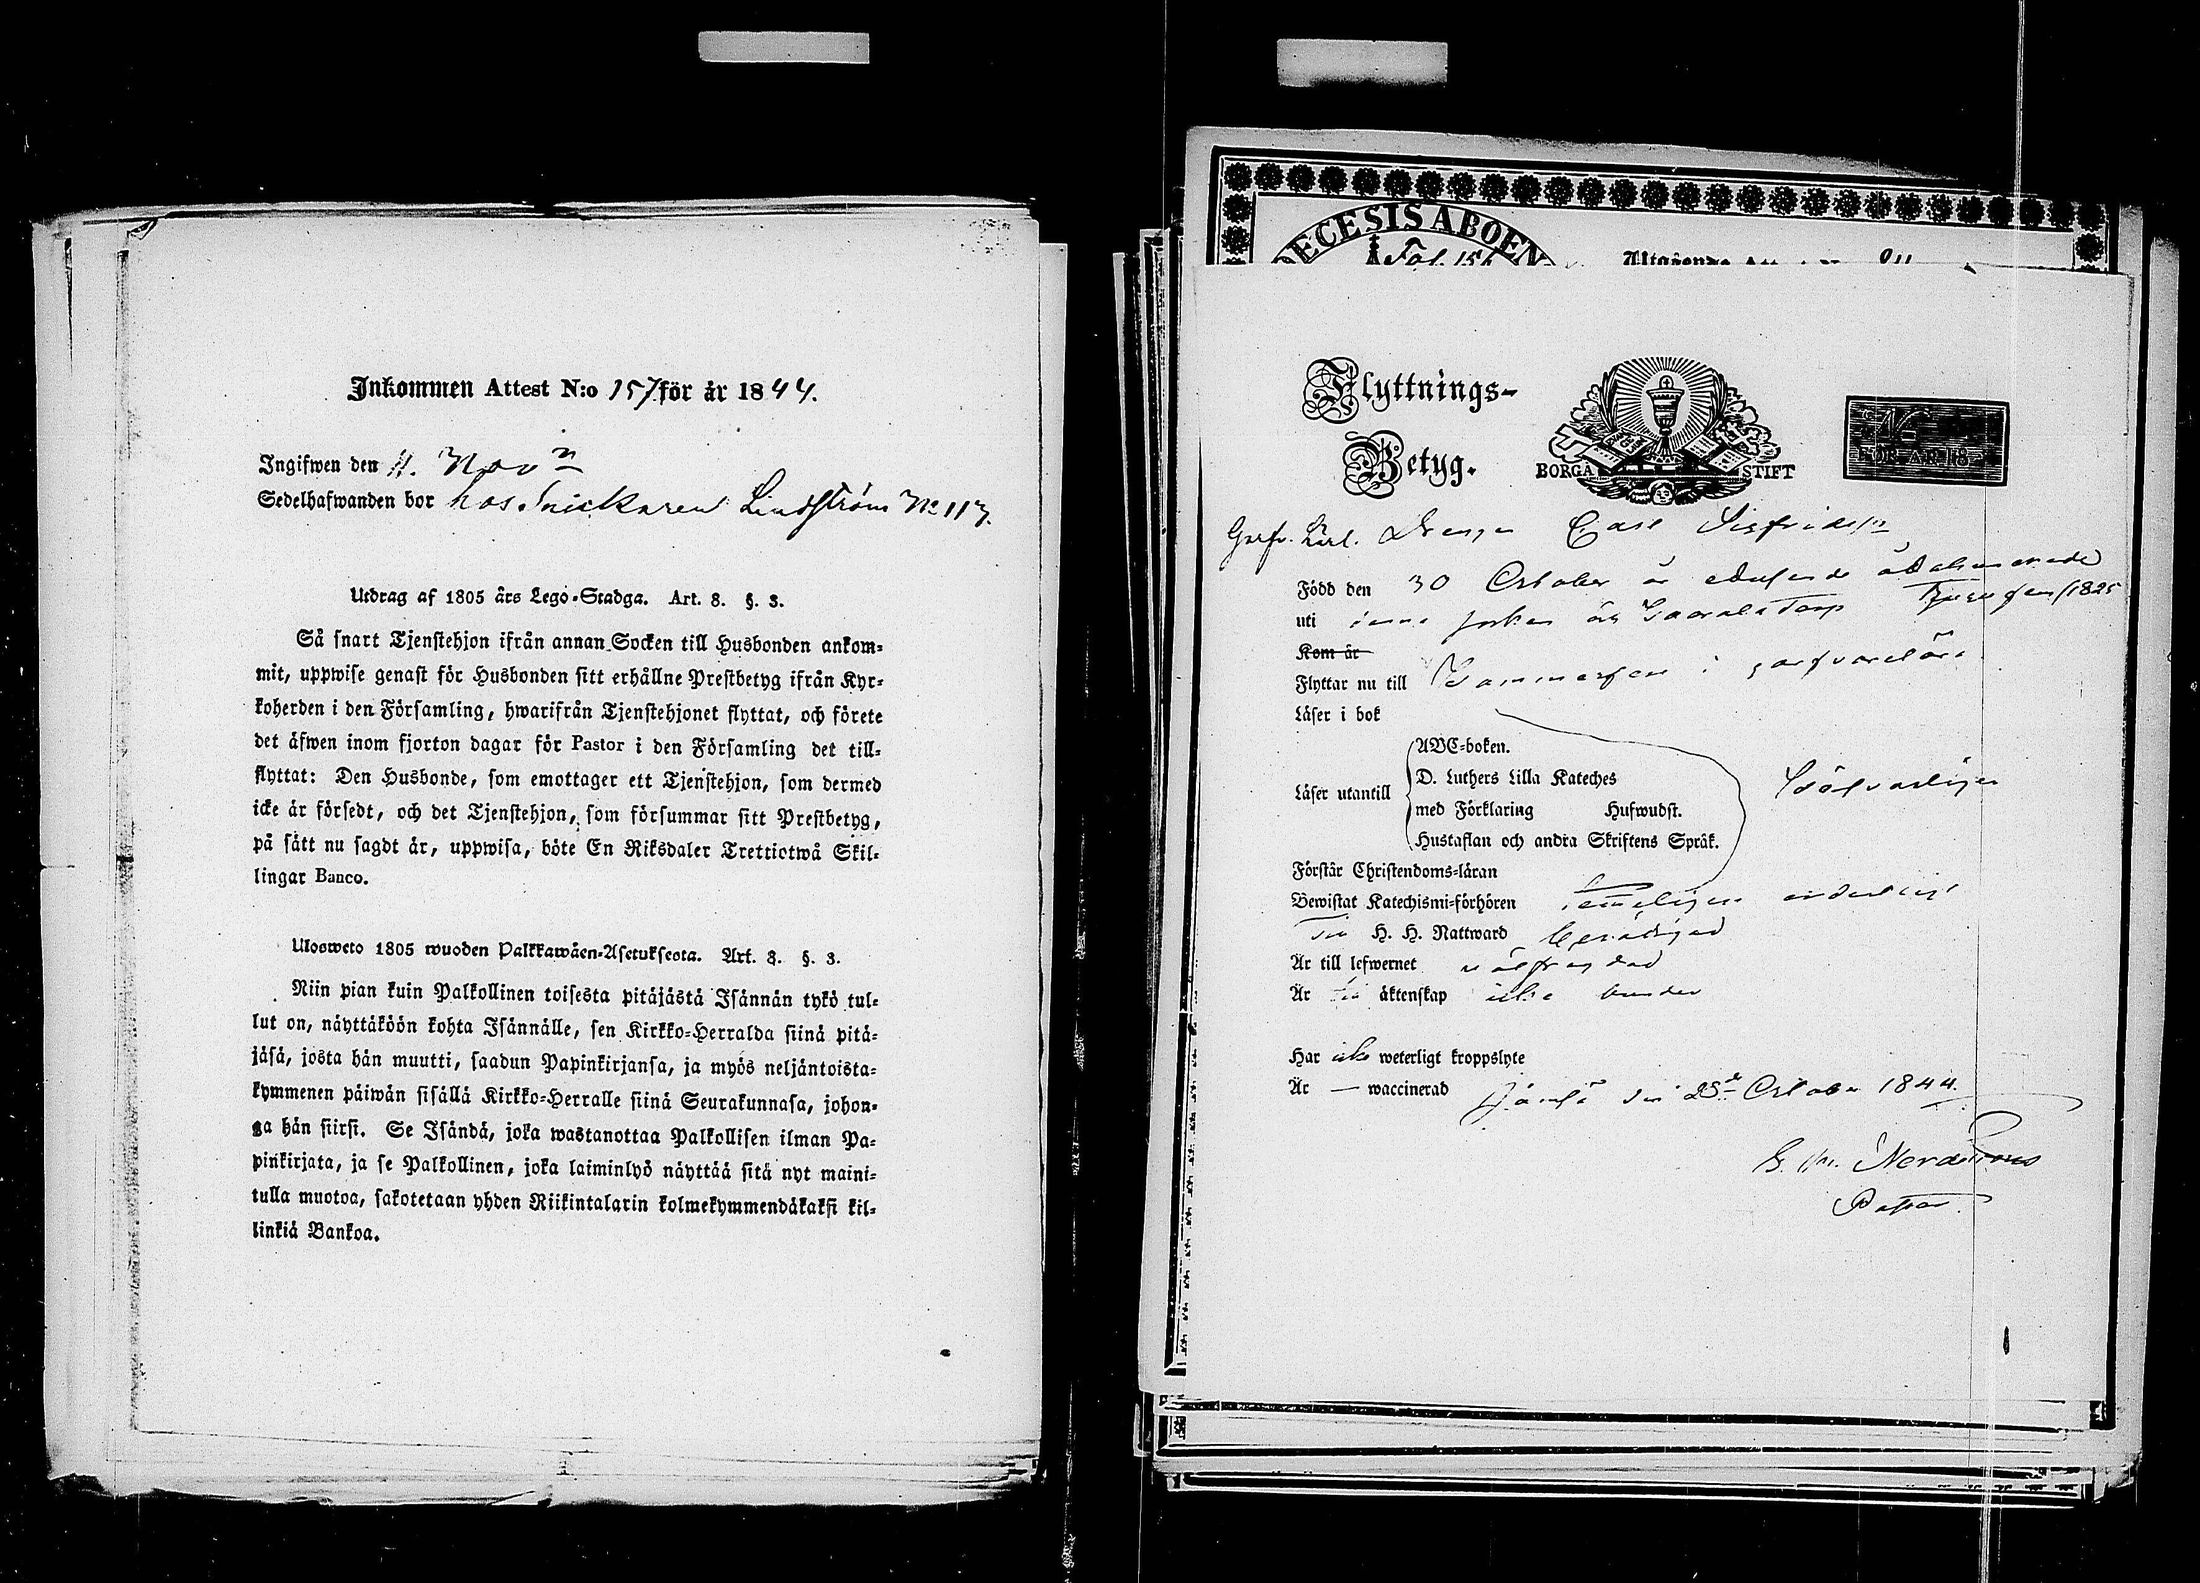 Inkommen Attest N:o 157 för år 1844.
Ingifwen den 11. Nov
Sedelhafwanden bor hos Snickaren Lindström No 117.
Utdrag af 1805 års Lego-Stadga. Art. 8. §. 3.
Så snart Tjenstehjon ifrån annan Socken till Husbonden ankom-
mit, uppwise genast för Husbonden sitt erhållne Prestbetyg ifrån Kyr-
koherden i den Församling, hwarifrån Tjenstehjonet flyttat, och förete
det äfwen inom fjorton dagar för Pastor i den Församling det till-
flyttat: Den Husbonde, som emottager ett Tjenstehjon, som dermed
icke är försedt, och det Tjenstehjon, som försummar sitt Prestbetyg,
på sätt nu sagdt är, uppwisa, böte En Riksdaler Trettiotwå Skil-
lingar Banco.
Ulosweto 1805 wuoden Palkkawäen-Asetuksesta. Art. 8. §. 3.
Niin pian kuin Palkollinen toisesta pitäjästä Isännän tykö tul-
lut on, näyttäköön kohta Isännälle, sen Kirkko-Herralda siinä pitä-
jäsä, josta hän muutti, saadun Papinkirjansa, ja myös neljäntoista-
kymmenen päiwän sisällä Kirkko-Herralle siinä Seurakunnasa, johon-
ga hän siirsi. Se Isändä, joka wastanottaa Palkollisen ilman Pa-
pinkirjata, ja se Palkollinen, joka laiminlyö näyttää sitä nyt maini-
tulla muotoa, sakotetaan yhden Riikintalarin kolmekymmendäkaksi kil-
linkiä Bankoa.
DECESIS ABOEN
Fol. 151
Utgående
Flyttnings-
Betyg.
BORGÅ STIFT
FÖR ÅR 18
Drengen Carl Sigfridsn
Född den 30 October år adertonde
Tjugufem/1825
uti denna socken
Kom år
Flyttar nu till Tammerfors i garfvarelära
Läser i bok
ABC-boken.
D. Luthers Lilla Kateches
Läser utantill
med Förklaring Hufwudst.
Hustaflan och andra Skriftens Språk.
Förstår Christendoms-läran
Bewistat Katechismi-förhören
Till H. H. Nattward berättigad
Är till lefwernet välfrejdad
Är till äktenskap icke bunden
Har icke weterligt kroppslyte
Är — waccinerad
Jämsä den 25 October 1844.
Pastor.